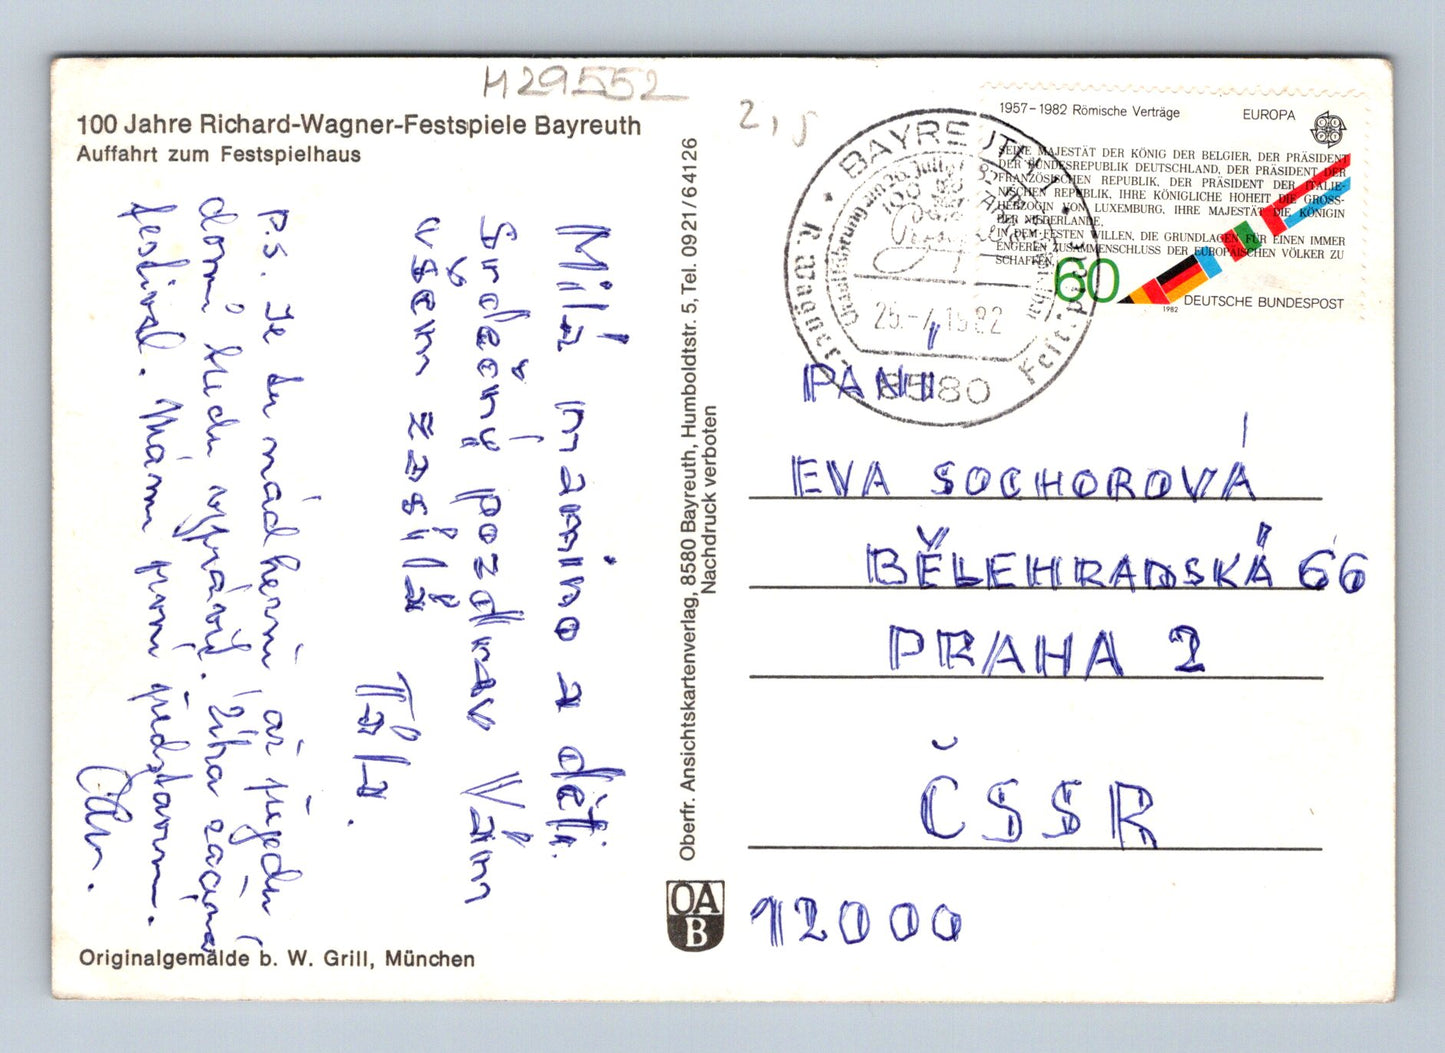 M29552
2,5
100 Jahre Richard-Wagner-Festspiele Bayreuth
Auffahrt zum Festspielhaus
Milá mamino a děti.
Srdečný pozdrav Vám
všem zasílá
Táta.
P.S. Je tu nádherně až přijedu
domů budu vyprávět. Zítra začíná
festival. Mám první představení.
Originalgemälde b. W. Grill, München
Oberfr. Ansichtskartenverlag, 8580 Bayreuth, Humboldtstr. 5, Tel. 0921/64126
Nachdruck verboten
OA
B
BAYREUTH 1
R. Wagner Festspiele
Uraufführung am 26. Juli 1882
100
Parsifal
25.-7.1982
8580
1957–1982 Römische Verträge
EUROPA
SEINE MAJESTÄT DER KÖNIG DER BELGIER, DER PRÄSIDENT
DER BUNDESREPUBLIK DEUTSCHLAND, DER PRÄSIDENT DER
FRANZÖSISCHEN REPUBLIK, DER PRÄSIDENT DER ITALIE-
NISCHEN REPUBLIK, IHRE KÖNIGLICHE HOHEIT DIE GROSS-
HERZOGIN VON LUXEMBURG, IHRE MAJESTÄT DIE KÖNIGIN
DER NIEDERLANDE,
IN DEM FESTEN WILLEN, DIE GRUNDLAGEN FÜR EINEN IMMER
ENGEREN ZUSAMMENSCHLUSS DER EUROPÄISCHEN VÖLKER ZU
SCHAFFEN,
60
1982
DEUTSCHE BUNDESPOST
PANÍ
EVA SOCHOROVÁ
BĚLEHRADSKÁ 66
PRAHA 2
ČSSR
12000